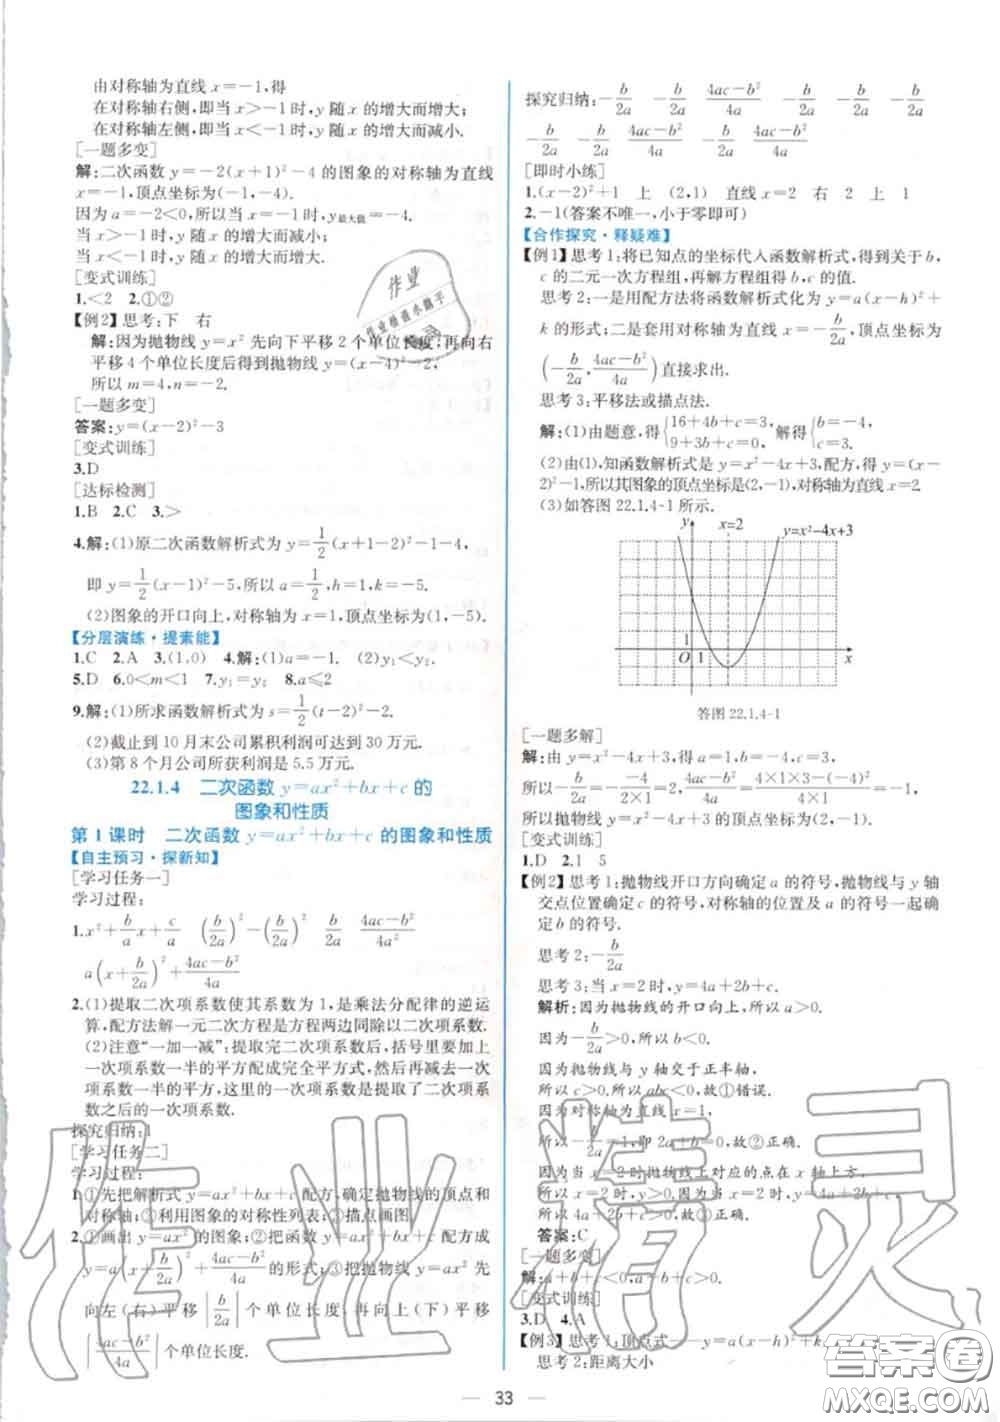 由对称轴为直线 x=-1,得
在对称轴右侧,即当 x>-1时,y 随 x 的增大而增大;
在对称轴左侧,即当 x<-1时,y 随 x 的增大而减小.
[一题多变]
解:二次函数 y=-2(x+1)²-4 的图象的对称轴为直线
x=-1,顶点坐标为(-1,-4).
因为 a=-2<0,所以当 x=-1时,y最大值=-4.
当 x>-1时,y 随 x 的增大而减小;
当 x<-1时,y 随 x 的增大而增大.
[变式训练]
1.<2 2.①②
【例2】思考:下 右
解:因为抛物线 y=x² 先向下平移 2 个单位长度,再向右
平移 4 个单位长度后得到抛物线 y=(x-4)²-2,
所以 m=4,n=-2.
[一题多变]
答案:y=(x-2)²-3
[变式训练]
3.D
[达标检测]
1.B 2.C 3.>
4.解:(1)原二次函数解析式为 y=1/2(x+1-2)²-1-4,
即 y=1/2(x-1)²-5,所以 a=1/2,h=1,k=-5.
(2)图象的开口向上,对称轴为 x=1,顶点坐标为(1,-5).
【分层演练·提素能】
1.C 2.A 3.(1,0) 4.解:(1)a=-1. (2)y₁<y₂.
5.D 6.0<m<1 7.y₁=y₂ 8.a≤2
9.解:(1)所求函数解析式为 s=1/2(t-2)²-2.
(2)截止到 10 月末公司累积利润可达到 30 万元.
(3)第 8 个月公司所获利润是 5.5 万元.
22.1.4 二次函数 y=ax²+bx+c 的
图象和性质
第 1 课时 二次函数 y=ax²+bx+c 的图象和性质
【自主预习·探新知】
[学习任务一]
学习过程:
1.x²+b/a x+c/a (b/2a)²-(b/2a)² b/2a (4ac-b²)/4a²
a(x+b/2a)²+(4ac-b²)/4a
2.(1)提取二次项系数使其系数为 1,是乘法分配律的逆运
算,配方法解一元二次方程是方程两边同除以二次项系数.
(2)注意“一加一减”:提取完二次项系数后,括号里要加上
一次项系数一半的平方配成完全平方式,然后再减去一次
项系数一半的平方,这里的一次项系数是提取了二次项系
数之后的一次项系数.
探究归纳:1
[学习任务二]
学习过程:
1.①先把解析式 y=ax²+bx+c 配方,确定抛物线的顶点和
对称轴;②利用图象的对称性列表;③描点画图.
2.①画出 y=ax² 的图象;②把函数 y=ax²+bx+c 配方成
y=a(x+b/2a)²+(4ac-b²)/4a 的形式;③把抛物线 y=ax² 先
向左(右)平移 |b/2a| 个单位长度,再向上(下)平移
|(4ac-b²)/4a| 个单位长度.
探究归纳:-b/2a -b/2a (4ac-b²)/4a -b/2a -b/2a
-b/2a -b/2a (4ac-b²)/4a -b/2a -b/2a (4ac-b²)/4a
[即时小练]
1.(x-2)²+1 上 (2,1) 直线 x=2 右 2 上 1
2.-1(答案不唯一,小于零即可)
【合作探究·释疑难】
【例1】思考1:将已知点的坐标代入函数解析式,得到关于 b,
c 的二元一次方程组,再解方程组得 b,c 的值.
思考2:一是用配方法将函数解析式化为 y=a(x-h)²+
k 的形式;二是套用对称轴为直线 x=-b/2a,顶点坐标为
(-b/2a,(4ac-b²)/4a)直接求出.
思考3:平移法或描点法.
解:(1)由题意,得{16+4b+c=3,9+3b+c=0, 解得{b=-4,c=3.
(2)由(1),知函数解析式是 y=x²-4x+3,配方,得 y=(x
-2)²-1,所以其图象的顶点坐标是(2,-1),对称轴为直线 x=2.
(3)如答图 22.1.4-1 所示.
y x=2 y=x²-4x+3
1
O 1 x
答图 22.1.4-1
[一题多解]
解:由 y=x²-4x+3,得 a=1,b=-4,c=3,
所以-b/2a=-(-4)/(2×1)=2,(4ac-b²)/4a=(4×1×3-(-4)²)/(4×1)=-1,
所以抛物线 y=x²-4x+3 的顶点坐标为(2,-1).
[变式训练]
1.D 2.1 5
【例2】思考1:抛物线开口方向确定 a 的符号,抛物线与 y 轴
交点位置确定 c 的符号,对称轴的位置及 a 的符号一起确
定 b 的符号.
思考2:-b/2a
思考3:当 x=2 时,y=4a+2b+c.
解析:因为抛物线的开口向上,所以 a>0.
因为-b/2a>0,所以 b<0.
因为抛物线与 y 轴交于正半轴,
所以 c>0.所以 abc<0,故①错误.
因为对称轴为直线 x=1,
所以-b/2a=1,即 2a+b=0,故②正确.
因为当 x=2时抛物线上对应的点在 x 轴上方,
所以当 x=2 时,y>0.因为当 x=2 时,y=4a+2b+c,
所以 4a+2b+c>0,故③正确.
答案:C
[一题多变]
[变式训练]
3.D 4.A
【例3】思考1:顶点式
思考2:距离 大小
33
作业精灵
答案圈
MXQE.COM